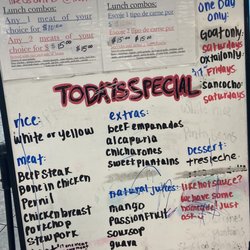 Lunch combos:
Any 1 meat of your choice
Any 2 meats of your choice
$15.00
$15.00
Lunch combos:
Escoje 1 tipo de carne por
Escoje 2 tipo de carne por
$15.00
$15.00
one Day
only:
Goat only:
saturdays
oxtail only:
Fridays
sancocho
saturdays
TODAY'S SPECIAL
rice:
white or yellow
meat:
Beef steak
Bone in chicken
Pernil
chicken breast
porkchop
stew pork
extras:
beef empanadas
alcapuria
chicharones
sweet plantains
natural juices:
mango
passion fruit
soursop
guava
Dessert:
tresleche
like hot sauce?
we have some
Just
ask